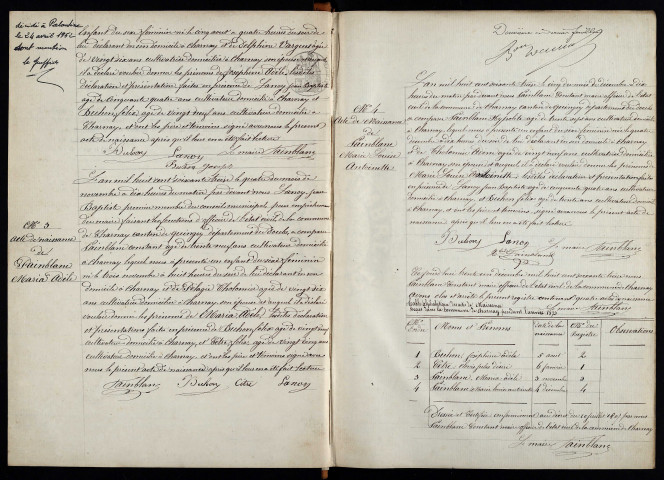 décédé à Palantine
le 24 avril 1952
dont mention
le greffier
Enfant du sexe féminin né le cinq août à quatre heures du soir de
lui déclarant en son domicile à Charnay et de Delphine Vargue agée
de vingt six ans cultivatrice domiciliée à Charnay son épouse et auquel
il a déclaré vouloir donner les prénoms de Joséphine Adèle, lesdites
déclaration et présentation faites en présence de Lanoy Jean Baptiste
agé de cinquante quatre ans cultivateur domicilié à Charnay et
Bechon Félix agé de vingt neuf ans cultivateur domicilié à
Charnay, et ont les père et témoins signé avec nous le présent
acte de naissance après qu'il leur en a été fait lecture
Buhon Lanoy le maire Sainblanc
No 3
Acte de naissance
de
Sainblanc
Maria Adèle
L'an mil huit cent soixante treize le quatre du mois de
novembre à dix heures du matin par devant nous Lanoy Jean
Baptiste premier membre du conseil municipal
du maire faisant les fonctions d'officier de l'état civil de la commune
de Charnay canton de Quingey département du Doubs, a comparu
Sainblanc Constant agé de trente neuf ans cultivateur domicilié
à Charnay lequel nous a présenté un enfant du sexe féminin
né le trois novembre à huit heures du soir de lui déclarant en son
domicile à Charnay et de Pélagie Tholomier agée de vingt six
ans cultivatrice domiciliée à Charnay, son épouse et auquel il a déclaré
vouloir donner les prénoms de Maria Adèle, lesdites déclaration
et présentation faites en présence de Bechon Félix agé de vingt neuf
cultivateur domicilié à Charnay, et Cêtre Félix, agé de vingt cinq ans
cultivateur domicilié à Charnay, et ont les père et témoins signé avec
nous le présent acte de naissance après qu'il leur en a été fait lecture
Sainblanc Buhon Cetre Lanoy
Deuxième et dernier feuillet
No 4
Acte de Naissance
de
Sainblanc
Marie Louise
Antoinette
L'an mil huit cent soixante treize le cinq du mois de décembre à dix
heures du matin par devant nous Sainblanc Constant maire officier de l'état
civil de la commune de Charnay canton de Quingey département du Doubs
a comparu Sainblanc Hypolite agé de trente ans cultivateur domicilié à
Charnay lequel nous a présenté un enfant du sexe féminin né le quatre
décembre à de lui déclarant en son domicile à Charnay et
de Tholomier agée de vingt neuf ans cultivatrice domiciliée à
Charnay, son épouse, et auquel il a déclaré vouloir donner les prénoms de
Marie Louise Antoinette lesdites déclaration et présentation faites
en présence de Lanoy Jean Baptiste agé de cinquante quatre ans cultivateur
domicilié à Charnay et Bechon Félix agé de trente ans cultivateur domicilié à
Charnay, et ont les père et témoins, signé avec nous le présent acte de
naissance, après qu'il leur en a été fait lecture
Buhon Lanoy le maire Sainblanc
H. Sainblanc
Cejourd'hui trente un décembre mil huit cent soixante treize nous
Sainblanc Constant maire officier de l'état civil de la commune de Charnay
avons clos et arrêté le présent registre contenant quatre actes de naissance
le maire Sainblanc
Table alphabétique des actes de Naissance
reçus dans la commune de Charnay pendant l'année 1873
Noms et Prénoms date de la naissance No du Registre Observations
1 Bechon Joséphine Adèle 5 août 2
2 Cêtre Désiré 6 janvier 1
3 Sainblanc Maria Adèle 3 novembre 3
4 Sainblanc Marie Louise Antoinette 4 décembre 4
Dressé et certifié conformément aux actes du registre par nous
Sainblanc Constant maire officier de l'état civil de la commune de Charnay
Le maire Sainblanc